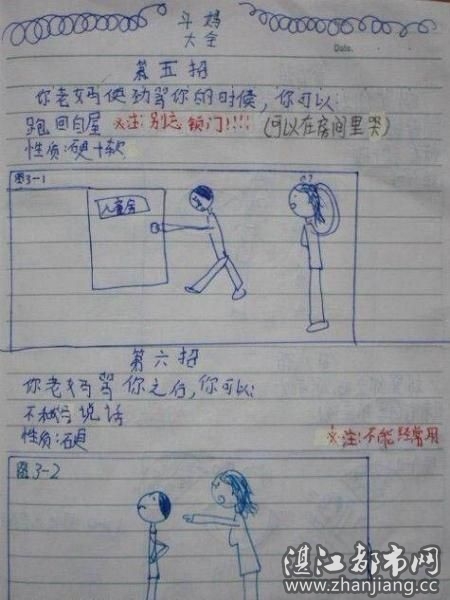 斗妈
大全
Date.
第五招
你老妈使劲骂你的时候，你可以：
跑回自屋 ※注:别忘锁门!!!! (可以在房间里哭)
性质:硬+软
图3-1
儿童
第六招
你老妈骂你之后,你可以:
不和妈说话
性质:硬
※注:不能经常用
图3-2
湛江都市网
www.zhanjiang.cc